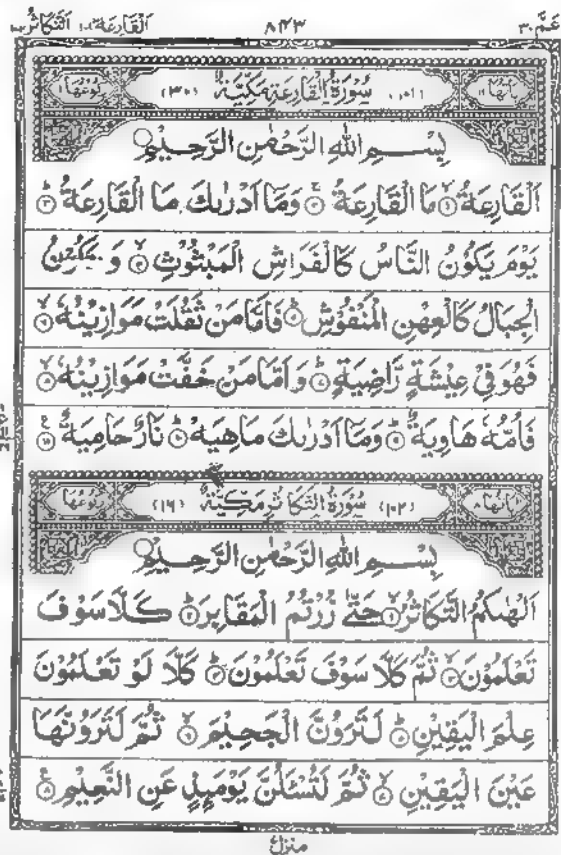 عَمَّ ٣٠ ٨٤٣ اَلْقَارِعَة ١٠١ اَلتَّكَاثُر ١٠٢
اٰيَاتُهَا ١١ (١٠١) سُوْرَةُ الْقَارِعَةِ مَكِّيَّةٌ (٣٠) رُكُوْعُهَا ١
بِسْمِ اللّٰهِ الرَّحْمٰنِ الرَّحِيْمِ
اَلْقَارِعَةُ ۙ﴿١﴾ مَا الْقَارِعَةُ ۚ﴿٢﴾ وَمَاۤ اَدْرٰىكَ مَا الْقَارِعَةُ ؕ﴿٣﴾
يَوْمَ يَكُوْنُ النَّاسُ كَالْفَرَاشِ الْمَبْثُوْثِ ۙ﴿٤﴾ وَ تَكُوْنُ
الْجِبَالُ كَالْعِهْنِ الْمَنْفُوْشِ ؕ﴿٥﴾ فَاَمَّا مَنْ ثَقُلَتْ مَوَازِيْنُهٗ ۙ﴿٦﴾
فَهُوَ فِيْ عِيْشَةٍ رَّاضِيَةٍ ؕ﴿٧﴾ وَ اَمَّا مَنْ خَفَّتْ مَوَازِيْنُهٗ ۙ﴿٨﴾
فَاُمُّهٗ هَاوِيَةٌ ؕ﴿٩﴾ وَمَاۤ اَدْرٰىكَ مَا هِيَهْ ؕ﴿١٠﴾ نَارٌ حَامِيَةٌ ﴿١١﴾
اٰيَاتُهَا ٨ (١٠٢) سُوْرَةُ التَّكَاثُرِ مَكِّيَّةٌ (١٦) رُكُوْعُهَا ١
بِسْمِ اللّٰهِ الرَّحْمٰنِ الرَّحِيْمِ
اَلْهٰىكُمُ التَّكَاثُرُ ۙ﴿١﴾ حَتّٰى زُرْتُمُ الْمَقَابِرَ ؕ﴿٢﴾ كَلَّا سَوْفَ
تَعْلَمُوْنَ ۙ﴿٣﴾ ثُمَّ كَلَّا سَوْفَ تَعْلَمُوْنَ ؕ﴿٤﴾ كَلَّا لَوْ تَعْلَمُوْنَ
عِلْمَ الْيَقِيْنِ ؕ﴿٥﴾ لَتَرَوُنَّ الْجَحِيْمَ ۙ﴿٦﴾ ثُمَّ لَتَرَوُنَّهَا
عَيْنَ الْيَقِيْنِ ۙ﴿٧﴾ ثُمَّ لَتُسْـَٔلُنَّ يَوْمَىِٕذٍ عَنِ النَّعِيْمِ ﴿٨﴾
منزل